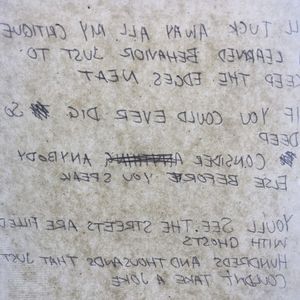 LL TUCK AWAY ALL MY CRITIQUE
LEARNED BEHAVIOR JUST TO
EEP THE DEEP EDGES NEAT
IF YOU COULD EVER DIG SO
DEEP
CONSIDER ANYBODY
ELSE BEFORE YOU SPEAK
YOULL SEE THE STREETS ARE FILLED
WITH GHOSTS
HUNDREDS AND THOUSANDS THAT JUST
COULDN'T TAKE A JOKE